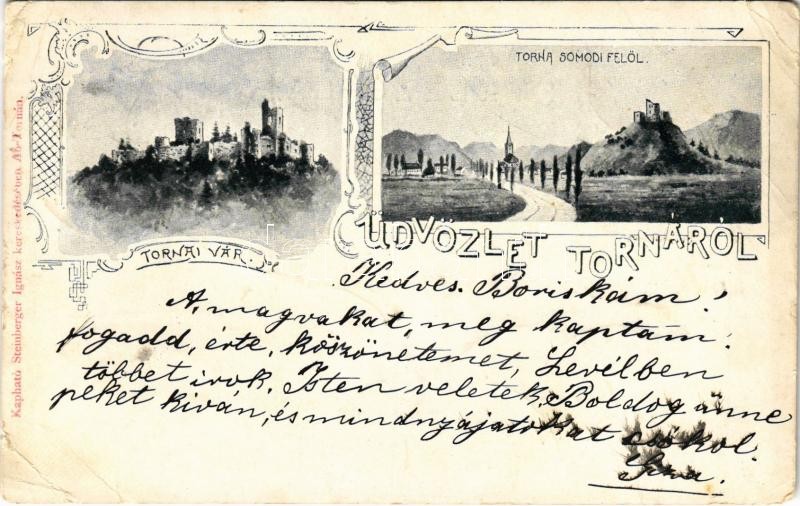 TORNA SOMODI FELŐL.
TORNAI VÁR.
ÜDVÖZLET TORNÁRÓL
Kapható Stemberger Ignácz kereskedésében Al-Tornán.
Kedves Boriskám!
A, magvakat, meg kaptam!
fogadd, érte, köszönetemet, Levélben
többet irok. Isten veletek. Boldog ünne
peket kiván, és mindnyájatokat csókol.